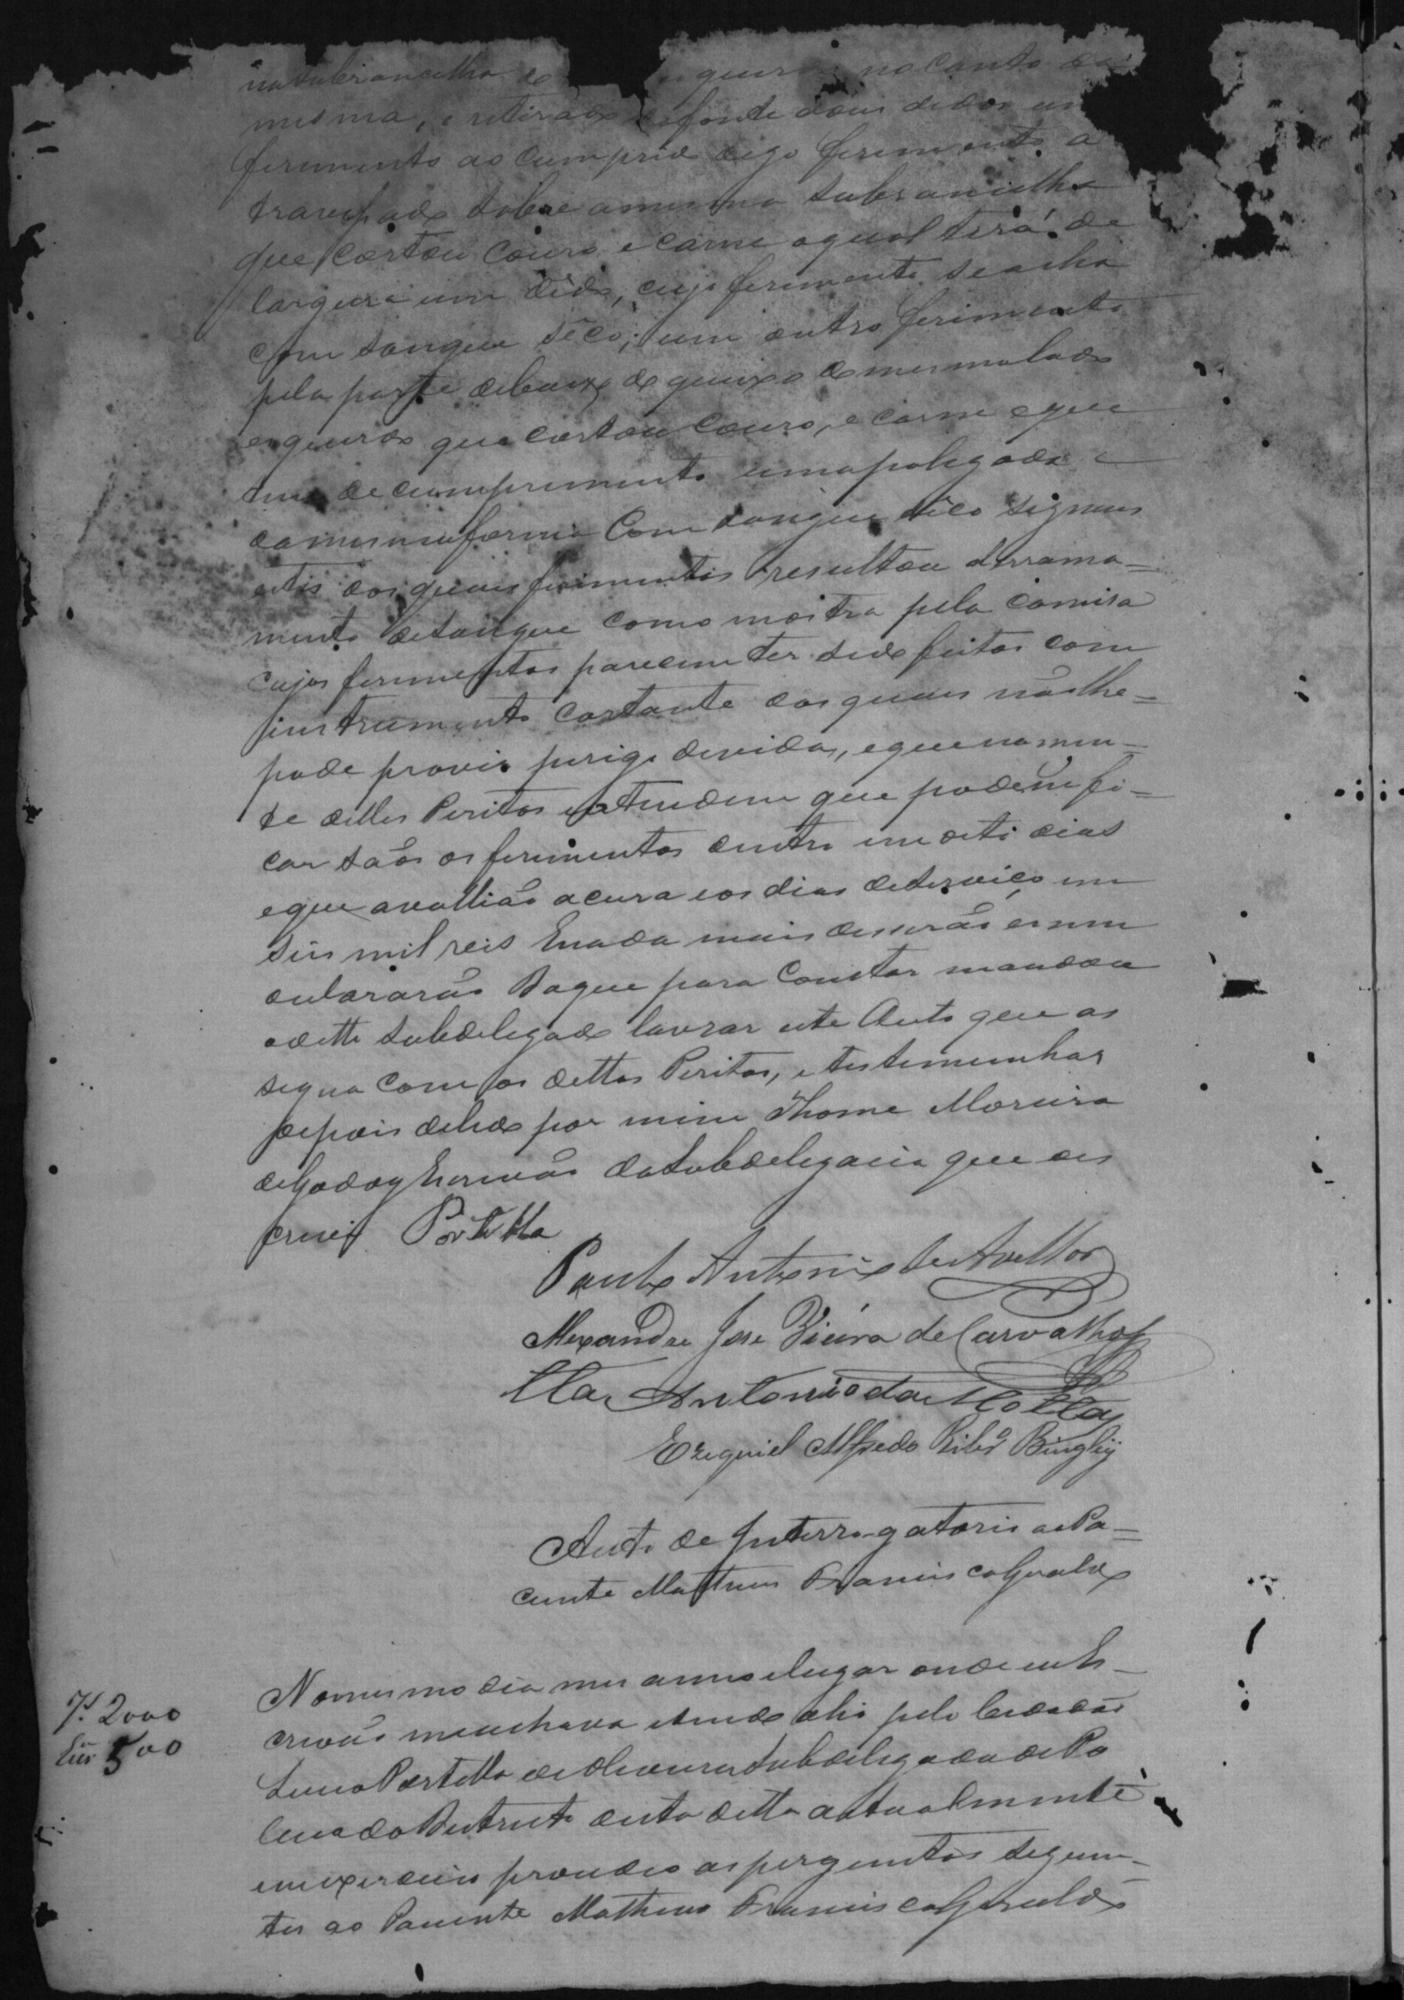 na subrancelha es querda no canto da
mesma, e retirado da fonte dous dedos um
ferimento ao comprido digo ferimento a
travessado sobre a mesma subrancelha
que cortou couro e carne o qual terá de
largura um dedo, cujo ferimento se acha
com sangue sêco; um outro ferimento
pela parte debaixo do queixo do mesmo lado
esquerdo que cortou couro, e carne e que
tem de comprimento uma polegada e
da mesma forma com sangue sêco
dos quais ferimentos resultou derrama-
mento de sangue como mostra pela camisa
cujos ferimentos parecem ter sido feitos com
instrumento cortante dos quais não lhe-
pode provir perigo de vida, e que na men-
te delles Peritos entendem que podem fi-
car sãos os ferimentos dentro em oito dias
e que avallião a cura e os dias de serviço em
seis mil reis E nada mais disserão e nem
declararão Do que para constar mandou
o ditto subdelegado lavrar este Auto que as
signa com os dittos Peritos, e testemunhas
depois de lido por mim Thome Moreira
de Godoy Escrivão da Subdelegacia que es
crevi Portella
Paulo Antonio de Avellar
Alexandre Jose Vieira de Carvalho
Antonio da Motta
Ezequiel Alfredo Ribro Bingly
Auto de Interrogatorio ao Pa-
ciente Matheus Francisco Geraldo
No mesmo dia mes anno e lugar onde eu Es-
crivão me achava e sendo ahi pelo Cidadão
Portella de Oliveira Subdelegado de Po
licia do Destricto desta ditta actualmente
em exercicio procedeo as perguntas seguin-
tes ao Paciente Matheus Francisco Geraldo
Js 2000
Esc 500